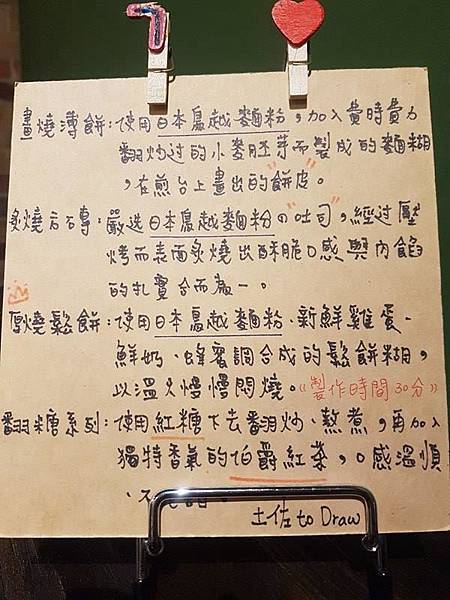 畫燒薄餅:使用日本鳥越麵粉,加入費時費力
翻炒过的小麥胚芽而製成的麵糊
,在煎台上畫出的"餅皮"。
炙燒方石專:嚴选日本鳥越麵粉の"吐司",經过壓
烤而表面炙燒出酥脆口感與內餡
的扎實合而為一。
厚燒鬆餅:使用日本鳥越麵粉、新鮮雞蛋、
鮮奶、蜂蜜調合成的鬆餅糊,
以温火慢慢悶燒。《製作時間30分》
翻糖系列:使用紅糖下去翻炒、熬煮,再加入
獨特香氣的伯爵紅茶,口感溫順
土佐 to Draw